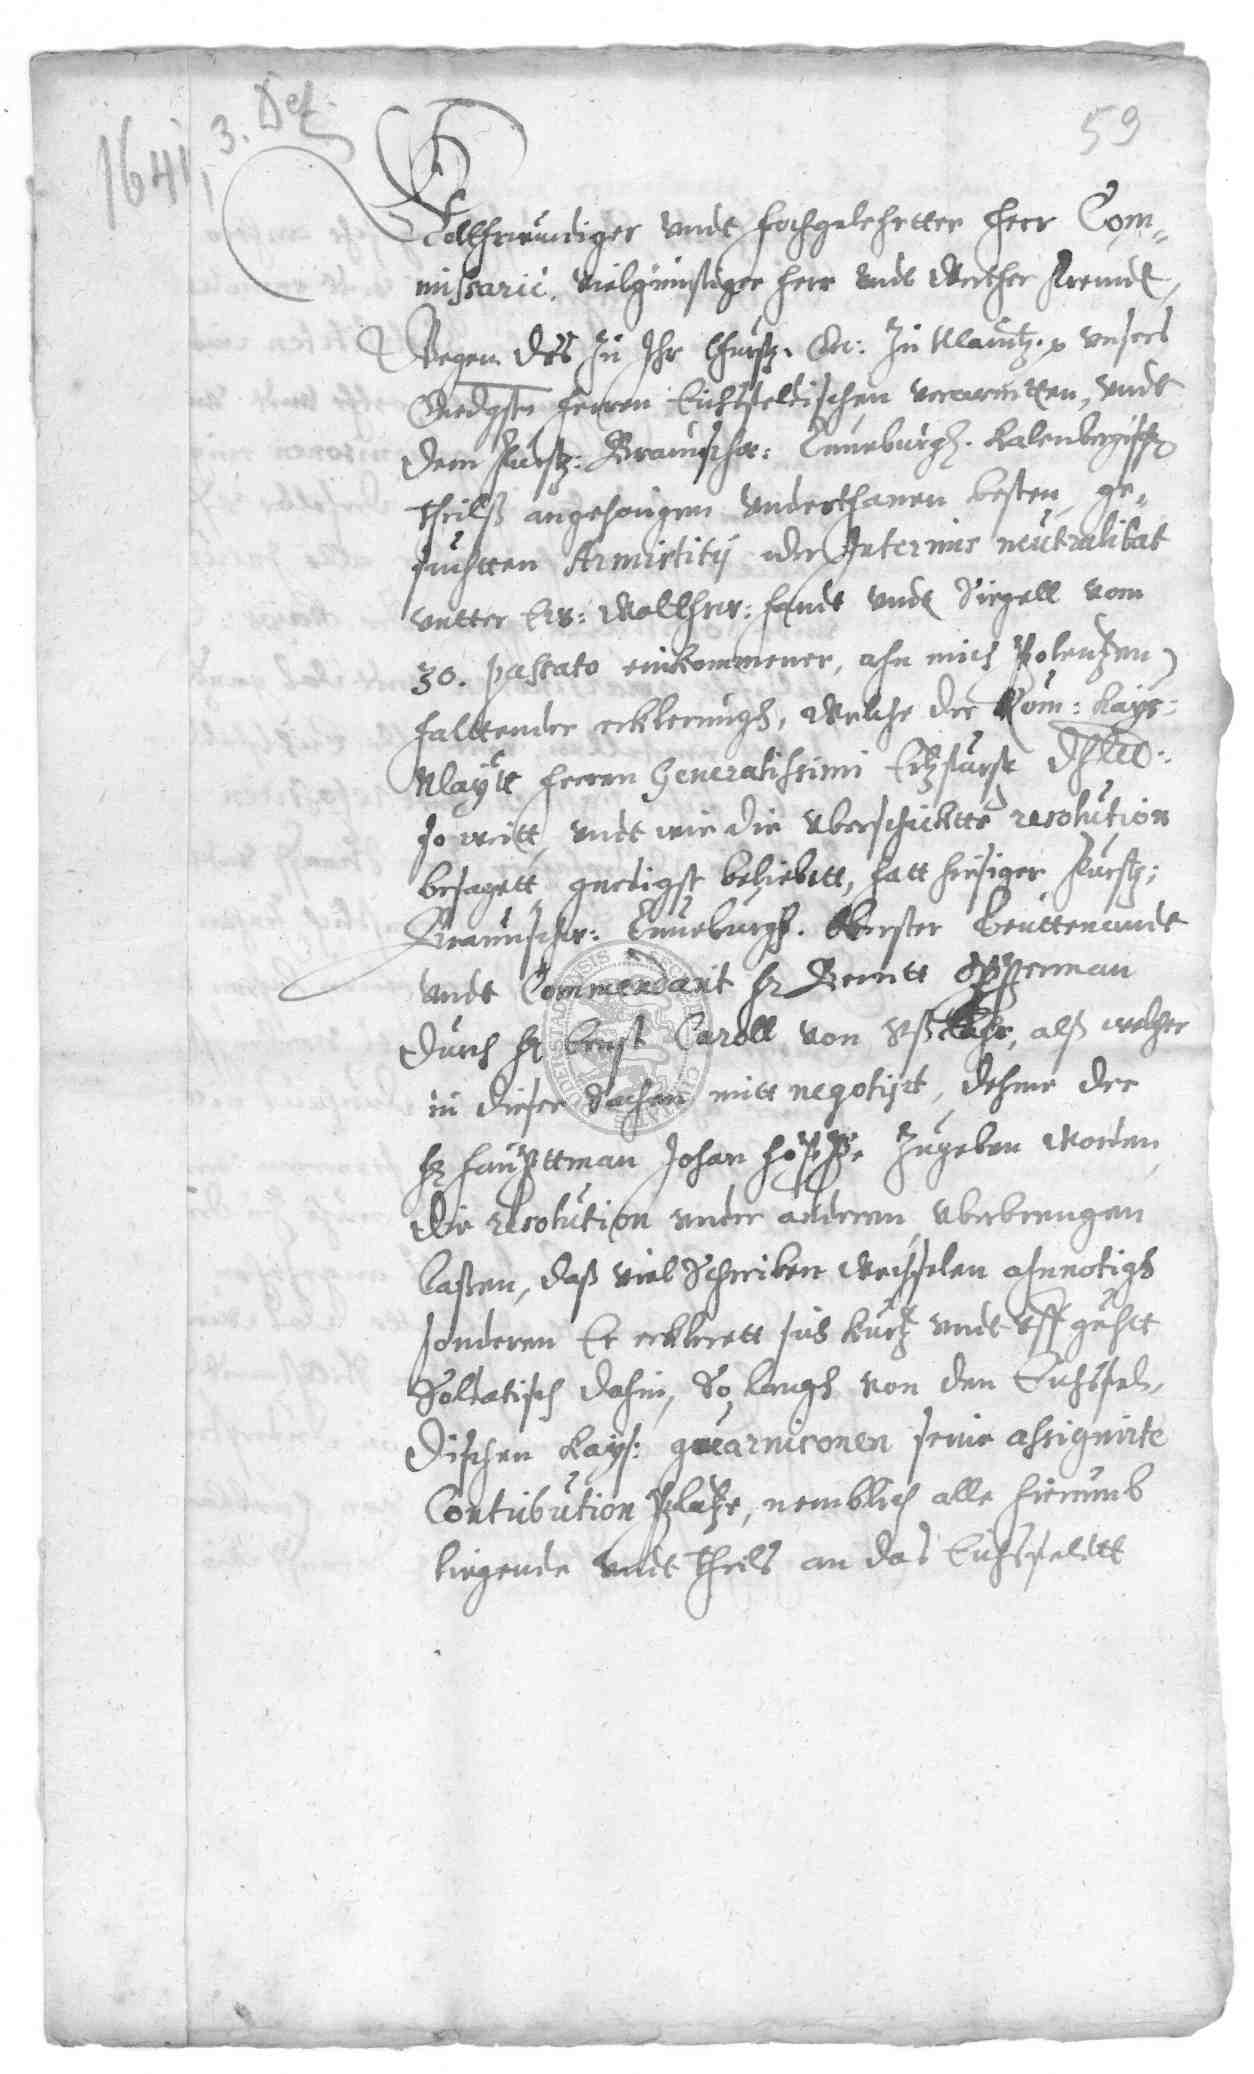 1641, 3. Dez.
59
Wollehrwurdiger undt hochgelehrtter Herr Com„
missarie, vielgunstiger Herr undt werther Freundt,
Wegen des zu Ihr Churfl. Gn: zu Maintz. unsers
Gnedgsten Herren Eichsfeldischen verarmten, undt
dem Furstl: Braunschw: Luneburgs. Kalenbergisch
theilß angehorigen underthanen besten, ge„
suchtten Armistitij oder Interims neutralitat
untter Ew: Wollehrw: handt undt Siegell vom
30. passato einkommener, ahn mich Polentzen
haltender erklerungh, welche der Röm: Kays:
Maytt Herren Generalissimi Ertzfurst Dhltt:
so weitt, undt wie die uberschicktte resolution
besagett gnedigst beliebett, hatt hiesiger Furstl:
Braunschw: Luneburgs. Obrister Leuttenandt
undt Commendant H Berntt Opperman
durch H Ernst Caroll von Ußlahr, alß welcher
in dieser Sachen mitt negotijrt, dehme der
H Hauptman Johan zugeben worden
die resolution under anderen uberbrengen
lassen, daß viel Schreiben wechselen ohnnotigh
sonderen Er erklerett sich kurtz undt uff guhtt
Soldatisch dahin, So langh von den Eichsfel„
dischen Kays: guarnisonen seine assignirte
Contribution Platze, nemblich alle hierumb
liegende undt theils an das Eichsfeldtt